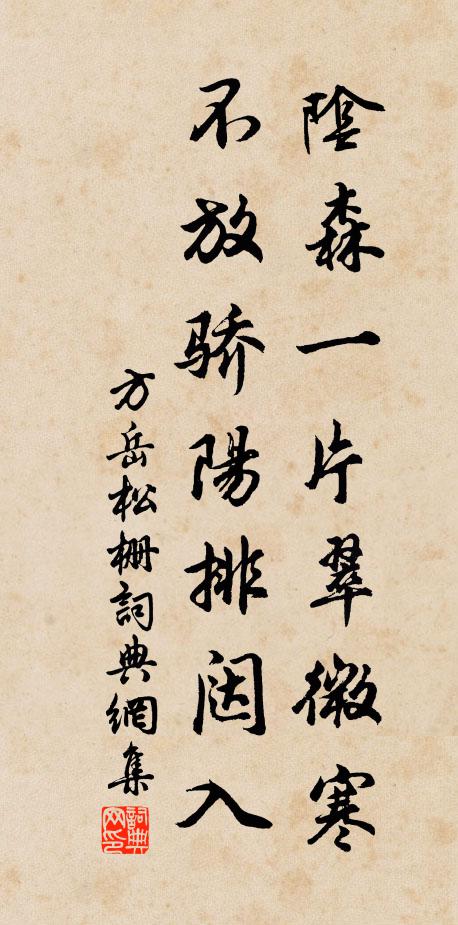 陰森一片翠微寒
不放骄陽排闼入
方岳松栅詞典網集
詞典網印